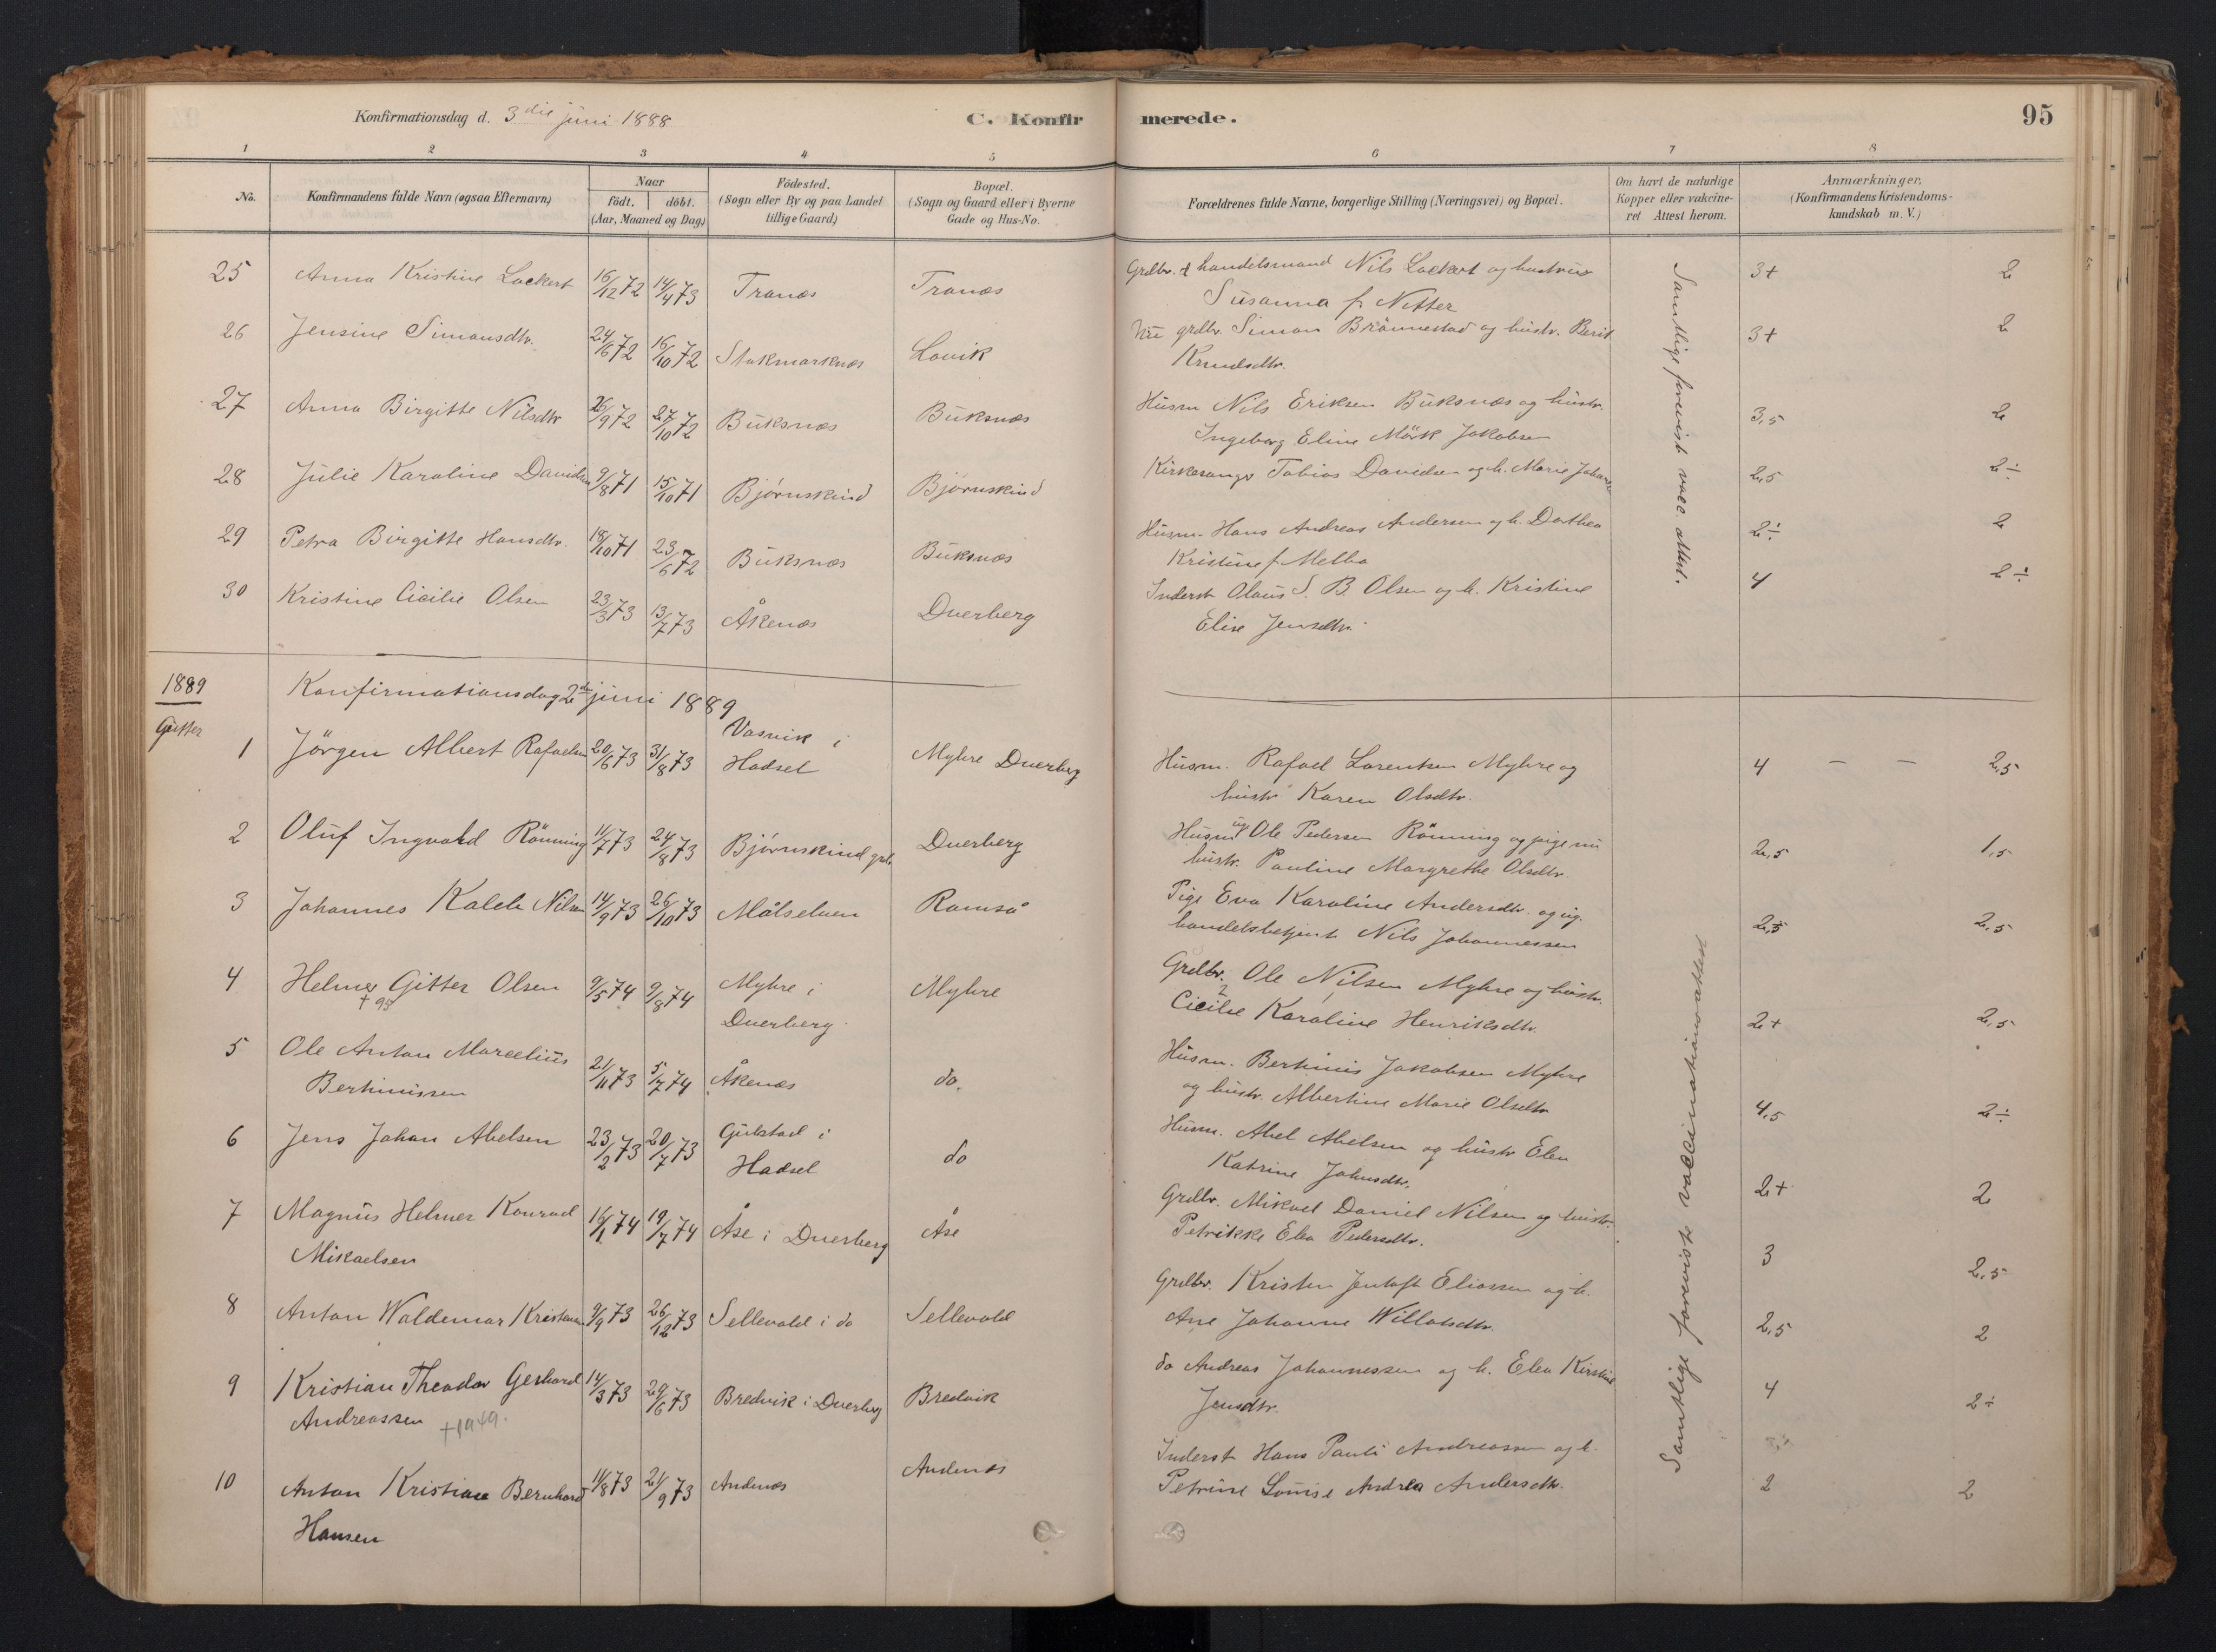 Konfirmationsdag d. 3die juni 1888
C. Konfirmerede.
95
1 2 3 4 5 6 7 8
No.
Konfirmandens fulde Navn (ogsaa Efternavn)
Naar
födt. | döbt.
(Aar, Maaned og Dag)
Födested.
(Sogn eller By og paa Landet
tillige Gaard)
Bopæl.
(Sogn og Gaard eller i Byerne
Gade og Hus-No.
Forældrenes fulde Navne, borgerlige Stilling (Næringsvei) og Bopæl.
Om havt de naturlige
Kopper eller vakcine-
ret Attest herom.
Anmærkninger,
(Konfirmandens Kristendoms-
kundskab m. V.)
25 Anna Kristine Lockert 16/12 72 14/4 73 Tranøs Tranøs Grdbr. & handelsmand Nils Lockert og hustru 3+ 2
Susanna f. Netter
26 Jensine Simonsdtr. 24/6 72 16/10 72 Stokmarknes Lovik grdbr. Simon Brönnestad og hustr. Berit 3+ 2
Knudsdtr.
27 Anna Birgitte Nilsdtr 26/9 72 27/10 72 Buksnæs Buksnæs Husm Nils Eriksen Buksnæs og hustr. 3,5 2
Ingeborg Eline Mörk Jakobsen
28 Julie Karoline Davidsen 9/8 71 15/10 71 Bjørnskind Bjørnskind Kirkesanger Tobias Davidsen og h. Marie 2,5 2÷
29 Petra Birgitte Hansdtr. 18/10 71 23/6 72 Buksnæs Buksnæs Husm. Hans Andreas Andersen og h. Dorthea 2÷ 2
Kristine f. Melbo
30 Kristine Cicilie Olsen 23/3 73 13/7 73 Åkenæs Dverberg Inderst Olaus S. B. Olsen og h. Kristine 4 2÷
Elise Jensdtr.
Samtlige forevist vacc. attest.
1889 Konfirmationsdag 2den juni 1889
Gutter
1 Jörgen Albert Rafaelsen 20/6 73 31/8 73 Vasvik i Hadsel Myhre Dverberg Husm. Rafael Lorentsen Myhre og 4 — — 2,5
hustr Karen Olsdtr.
2 Oluf Ingvald Rönning 11/7 73 24/8 73 Bjørnskind Dverberg Husm ug Ole Pedersen Rönning og pige nu 2,5 1,5
hustr. Pauline Margrethe Olsdtr.
3 Johannes Kaleb Nilsen 14/9 73 26/10 73 Målselven Ramså Pige Eva Karoline Andersdtr. og ug. 2,5 2,5
handelsbetjent Nils Johannessen
4 Helmer Gitter Olsen 9/5 74 9/8 74 Myhre i Dverberg. Myhre Grdbr. Ole Nilsen Myhre og hustr. 2+ 2,5
+ 95
Cicilie Karoline Henriksdtr.
5 Ole Anton Marcelius 21/11 73 5/7 74 Åkenæs do. Husm. Bertinus Jakobsen Myhre 4,5 2÷
Bertinussen og hustr. Albertine Marie Olsdtr
6 Jens Johan Abelsen 23/2 73 20/7 73 Gulstad i Hadsel do Husm. Abel Abelsen og hustr Elen 2+ 2
Katrine Johnsdtr.
7 Magnus Helmer Konrad 16/1 74 19/7 74 Åse i Dverberg Åse Grdbr. Mikael Daniel Nilsen og hustr. 3 2,5
Mikaelsen Petrikke Elea Pedersdtr.
8 Anton Waldemar Kristensen 9/9 73 26/12 73 Sellevold i do Sellevold Grdbr. Kristen Jentoft Eliassen og h. 2,5 2
Ane Johanne Willatsdtr.
9 Kristian Theodor Gerhard 14/3 73 29/6 73 Bredvik i Dverberg Bredvik do Andreas Johannessen og h. Elea Kirstine 4 2÷
Andreassen +1949. Jensdtr.
10 Anton Kristian Bernhard 11/8 73 21/9 73 Andenæs Andenæs Inderst Hans Pauli Andreassen og h. 2 2
Hansen Petrine Lovise Andrea Andersdtr.
Samtlige foreviste vaccinationsattest